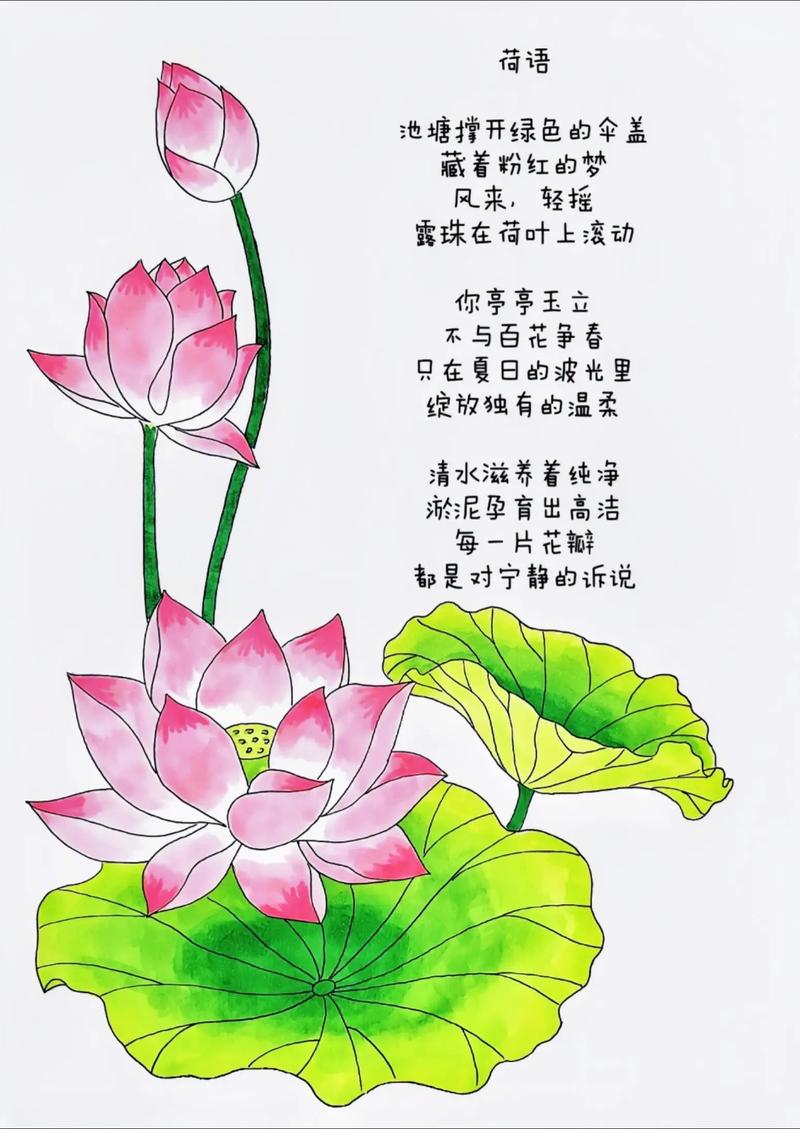 荷语
池塘撑开绿色的伞盖
藏着粉红的梦
风来，轻摇
露珠在荷叶上滚动
你亭亭玉立
不与百花争春
只在夏日的波光里
绽放独有的温柔
清水滋养着纯净
淤泥孕育出高洁
每一片花瓣
都是对宁静的诉说